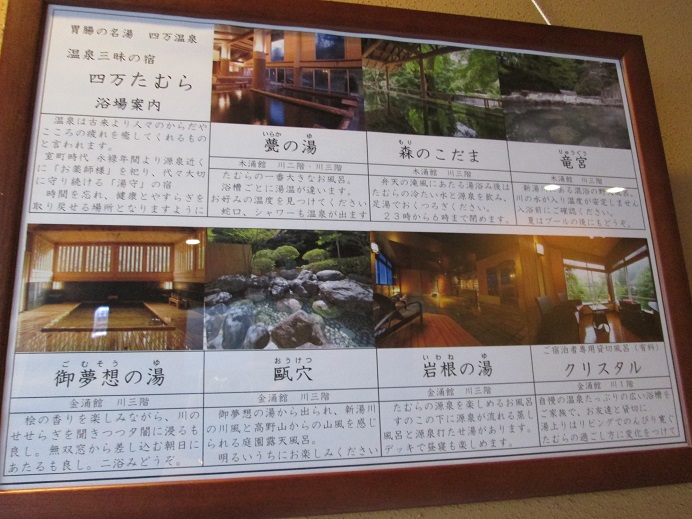 胃腸の名湯 四万温泉
温泉三昧の宿
四万たむら
浴場案内
温泉は古来より人々のからだや
こころの疲れを癒してくれるもの
と言われます。
室町時代 永禄年間より源泉近く
に「お薬師様」を祀り、代々大切
に守り続ける「湯守」の宿
時間を忘れ、健康とやすらぎを
取り戻せる場所となりますように
いらか ゆ
甍の湯
木涌館 川二階・川三階
たむらの一番大きなお風呂。
浴槽ごとに湯温が違います。
お好みの温度を見つけてください
蛇口、シャワーも温泉が出ます
もり
森のこだま
木涌館 川三階
弁天の滝風にあたる湯浴み後は
たむらの冷たい水と源泉を飲み、
足湯でおくつろぎください。
23時から6時まで閉めます。
りゅうぐう
竜宮
新湯
ある温泉の野
川の水が入り温度が安定しません
入浴前にご確認ください。
夏はプールの後にもどうぞ。
ごむそう ゆ
御夢想の湯
金涌館 川三階
桧の香りを楽しみながら、川の
せせらぎを聞きつつ夕闇に浸るも
良し。無双窓から差し込む朝日に
あたるも良し。二浴みどうぞ。
おうけつ
甌穴
金涌館 川三階
御夢想の湯から出られ、新湯川
の川風と高野山からの山風を感じ
られる庭園露天風呂。
明るいうちにお楽しみください
いわね ゆ
岩根の湯
金涌館 川三階
たむらの源泉を楽しめるお風呂
すのこの下に源泉が流れる蒸し
風呂と源泉打たせ湯があります。
デッキで昼寝も楽しめます。
ご宿泊者専用貸切風呂(有料)
クリスタル
金涌館 川1階
自慢の温泉たっぷりの広い浴槽を
ご家族で、お友達と貸切に
湯上りはリビングでのんびり寛ぐ
たむらの過ごし方に変化をつけて